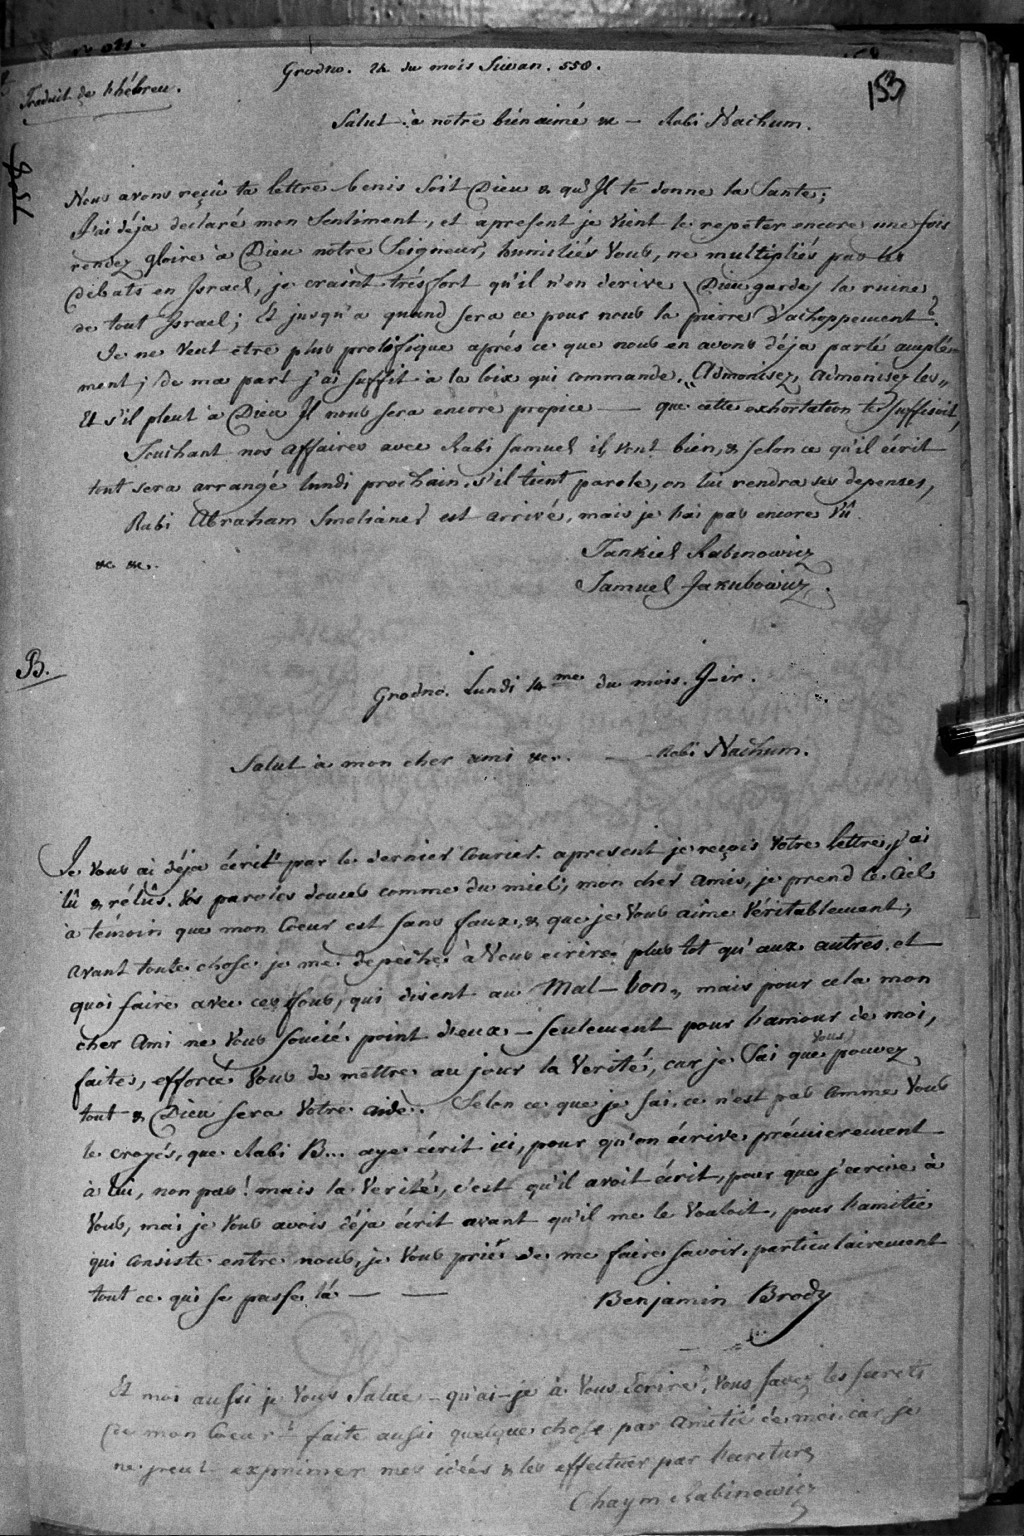 Grodno. 24 du mois Siwan. 558.
153
Traduit de l'hébreu.
Salut à notre bien aimé &c — Rabi Nachum.
Nous avons reçû ta lettre benis soit Dieu & qu'Il te donne la Santé;
J'ai déja declaré mon Sentiment, et apresent je vient le repeter encore une fois
rendez gloire à Dieu notre Seigneur, humiliés Vous, ne multipliés pas les
debats en Israel, je craint très fort qu'il n'en derive (Dieu garde) la ruine
de tout Israel; Et jusqu'a quand sera ce pour nous la pierre d'achoppement?
Je ne veut être plus prolifique aprés ce que nous en avons déja parlé amplé-
ment; de ma part j'ai suffit à la loix qui commande. „Admonisez, admonisez les„
Et s'il pleut à Dieu Il nous sera encore propice — que cette exhortation te suffisoit,
Touchant nos affaires avec Rabi Samuel il vont bien, & selon ce qu'il écrit
tout sera arrangé lundi prochain. s'il tient parole, on lui rendra ses depenses,
Rabi Abraham Smolianer est arrivé, mais je l'ai pas encore vû
&c &c.
Jankiel Rabinowicz
Samuel Jakubowicz.
B.
Grodno. Lundi 14me du mois. J-ir.
Salut à mon cher ami &c. — Rabi Nachum.
Je vous ai déja écrit par le dernier Courier. apresent je reçois votre lettre, j'ai
lû & rélûs. Vos paroles doues comme du miel, mon cher Amis, je prend le Ciel
à témoin que mon Coeur est sans faux, & que je Vous aime Véritablement;
avant toute chose je me depèche à Vous écrire plus tot qu'aux autres. et
quoi faire avec ces fous, qui disent au Mal — bon„ mais pour cela mon
cher Ami ne Vous soucié point d'eux — seulement pour l'amour de moi,
faites, efforcé Vous de mettre au jour la Verité, car je Sai que Vous pouvez
tout & Dieu sera Votre aide. Selon ce que je sai, ce n'est pas comme Vous
le croyés, que Rabi B... aye écrit ici, pour qu'on écrive prémierement
à lui, non pas! mais la Verité, c'est qu'il avoit écrit, pour que j'écrive à
Vous, mai je Vous avois déja écrit avant qu'il me le Vouloit, pour l'amitié
qui consiste entre nous, je Vous prie de me faire savoir. particulairement
tout ce qui se passe là — —
Benjamin Brody
Et moi aussi je Vous Salue — qu'ai-je à Vous écrire? Vous savez les secrets
de mon Coeur — faite aussi quelque chose par Amitié de moi, car je
ne peut exprimer mes idées & les effectuer par l'ecriture
Chaym Rabinowicz